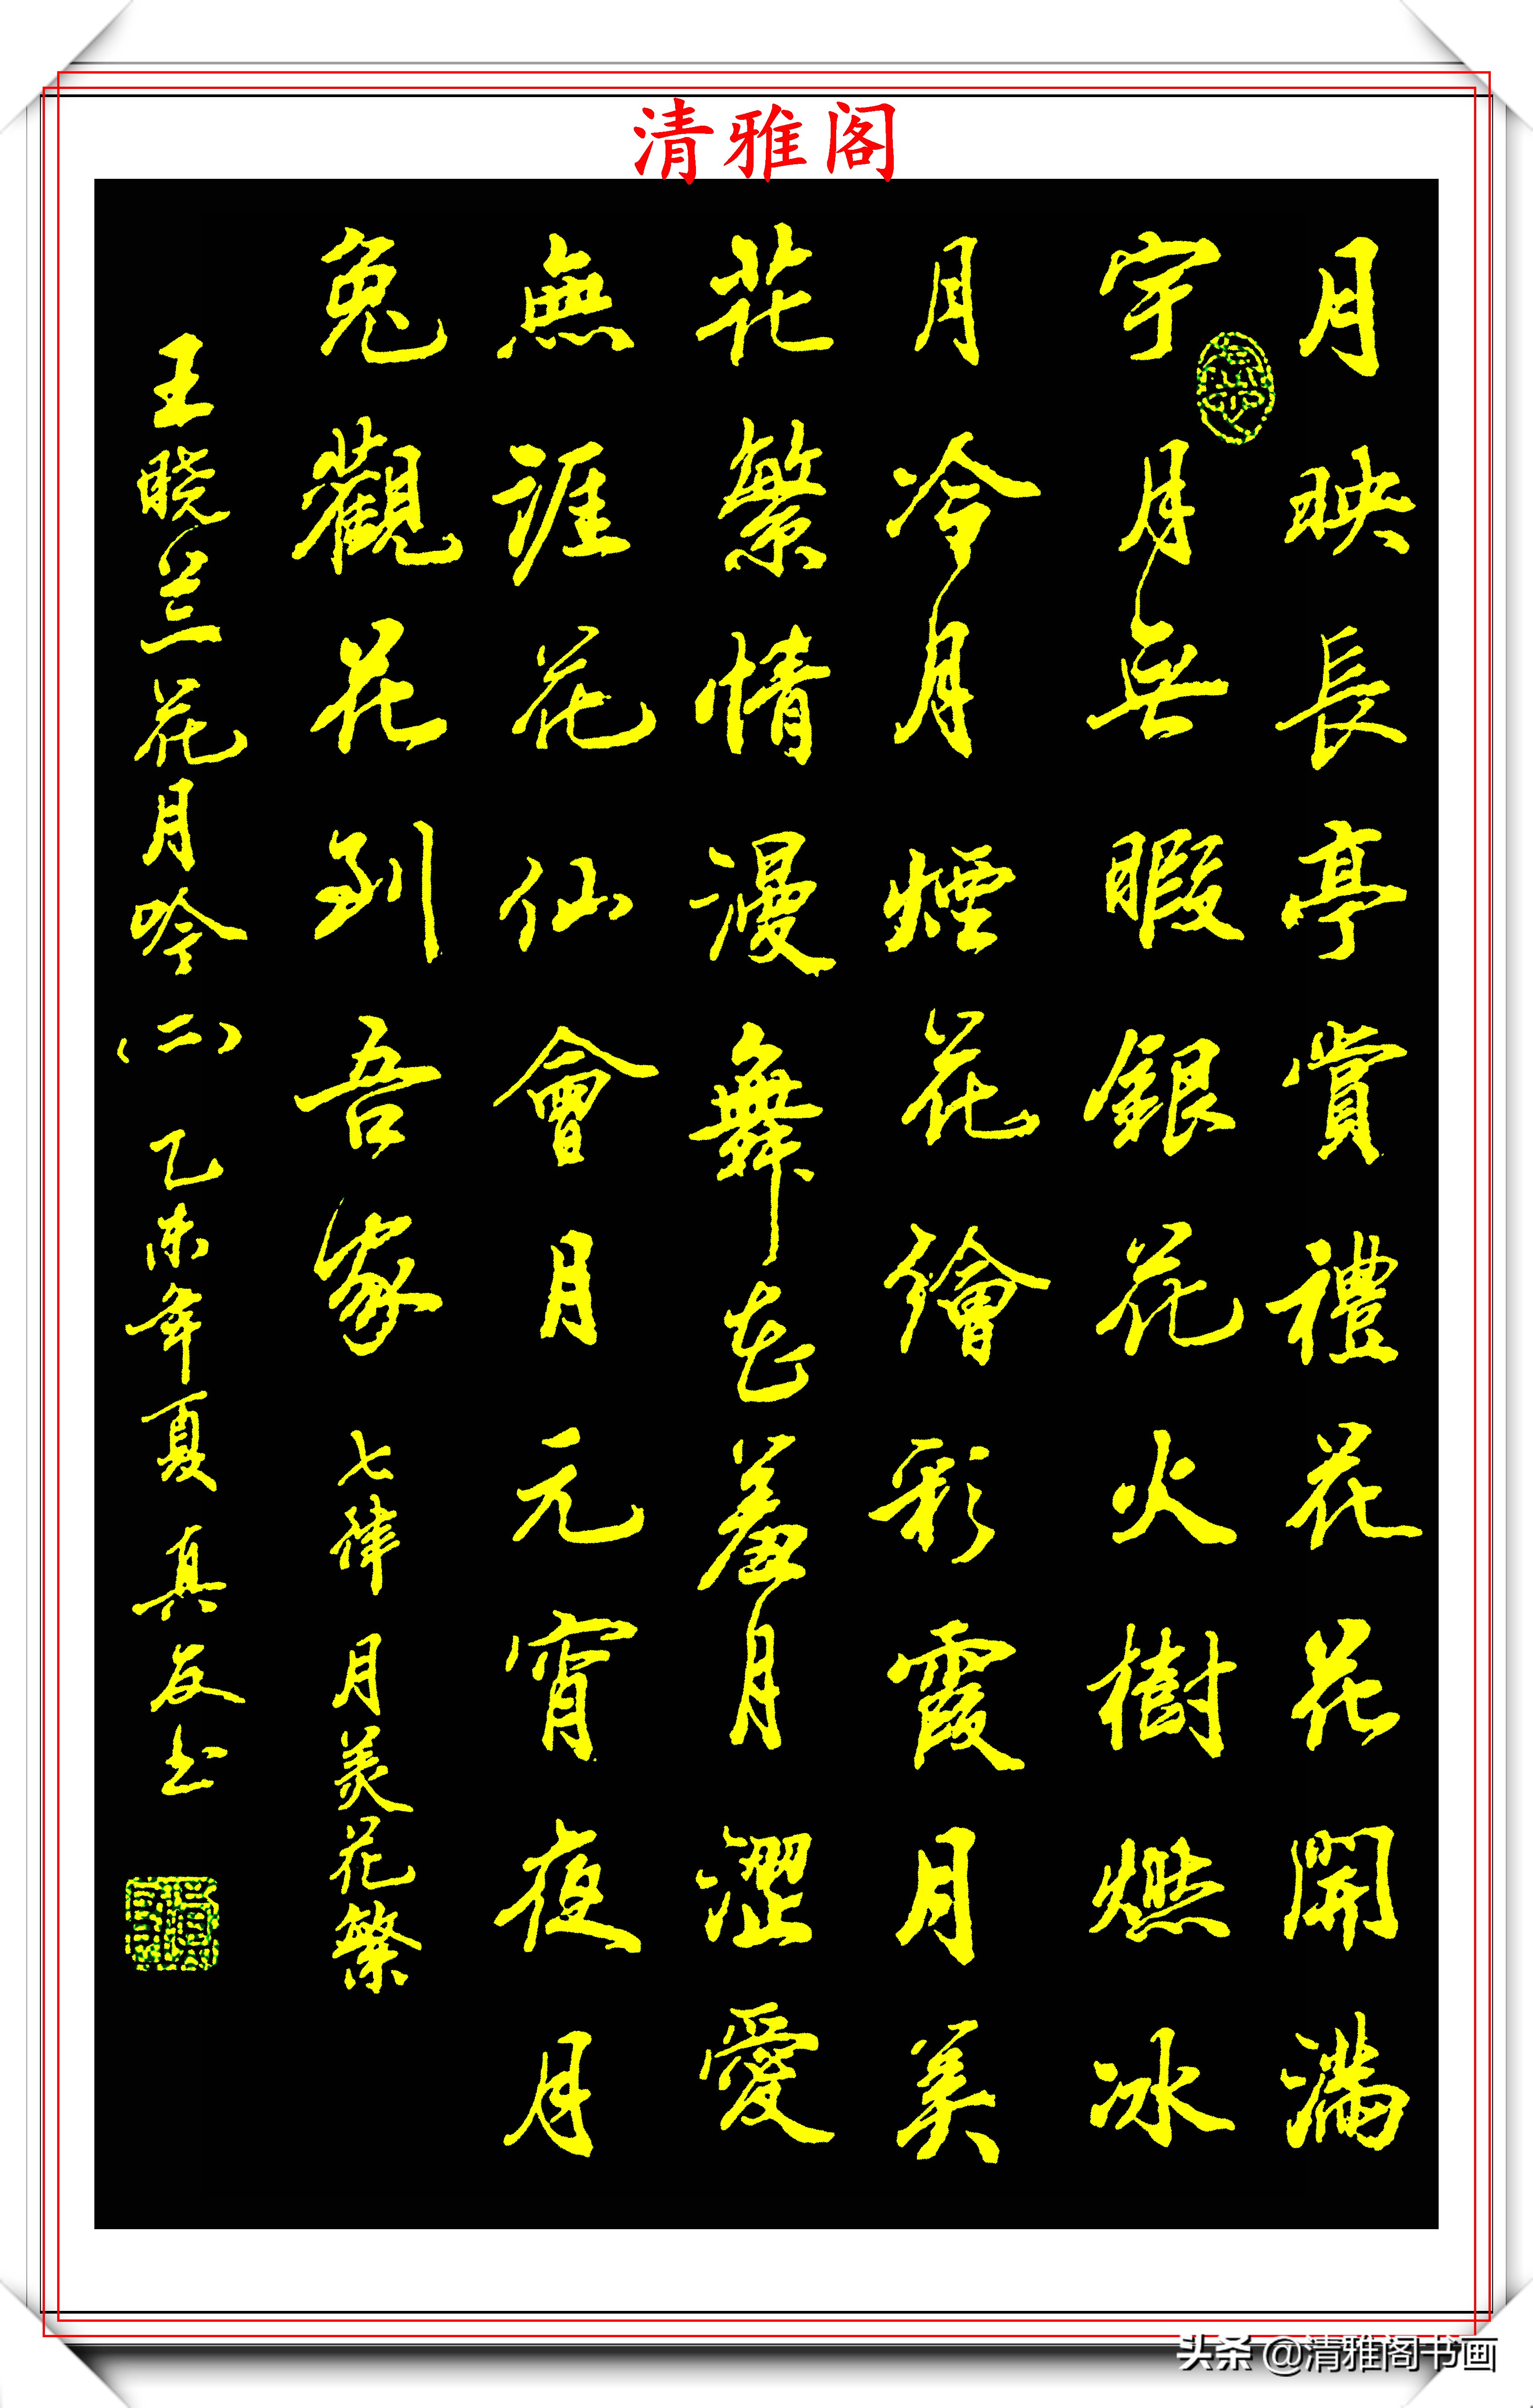 清雅阁
月映長亭賞禮花花開滿
宇月無暇銀花火樹燃冰
月冷月煙花繪彩霞月美
花繁情漫舞花羞月澀愛
無涯花仙會月元宵夜月
兔觀花到吾家 七律 月美花繁
王晓兰花月吟(二) 乙未年夏 真友书
头条 @清雅阁书画